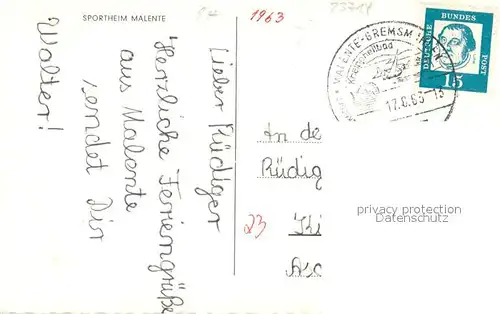 SPORTHEIM MALENTE
1963
Lieber Rüdiger
Herzliche Feriengrüße
aus Malente
sendet Dir
Walter!
MALENTE-GREMSM
Kneippheilbad
17.6.63-13
DEUTSCHE BUNDES POST
15
An de
Rüdig
23
privacy protection
Datenschutz